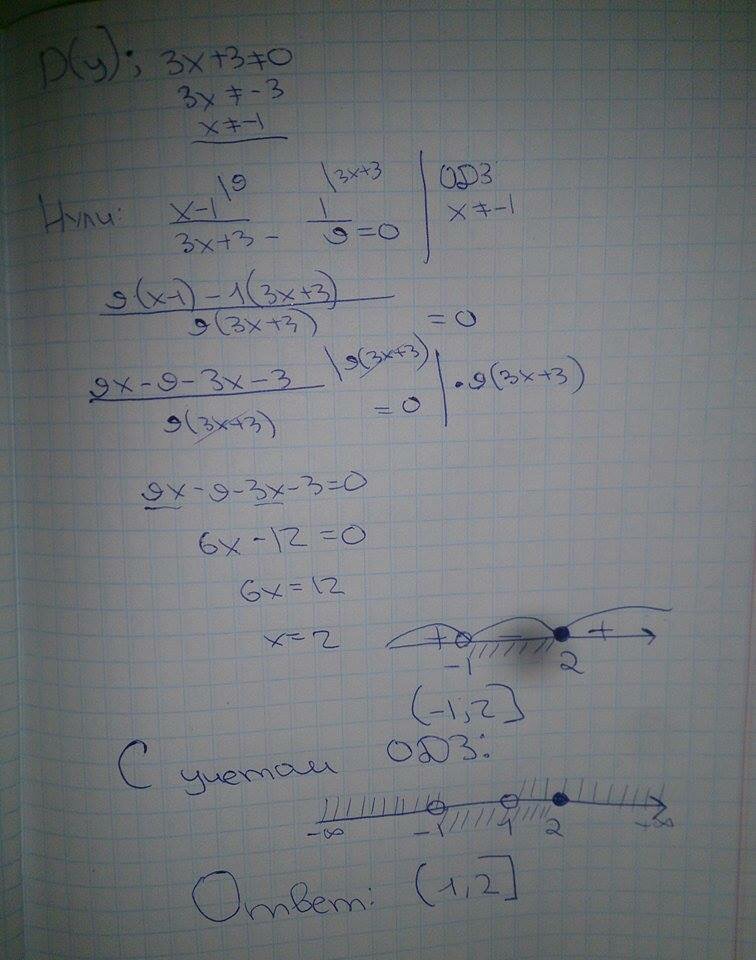 D(y); 3x+3≠0
3x≠-3
x≠-1
Нули: \frac{x-1}{3x+3}^{\9} - \frac{1}{9}^{\3x+3} = 0 | ОДЗ
x≠-1
\frac{9(x-1)-1(3x+3)}{9(3x+3)} = 0
\frac{9x-9-3x-3}{9(3x+3)}^{\9(3x+3)} = 0 | ·9(3x+3)
9x-9-3x-3=0
6x-12=0
6x=12
x=2
+ - +
-1 2
(-1,2]
С учетом ОДЗ:
-∞ -1 1 2 +∞
Ответ: (1,2]